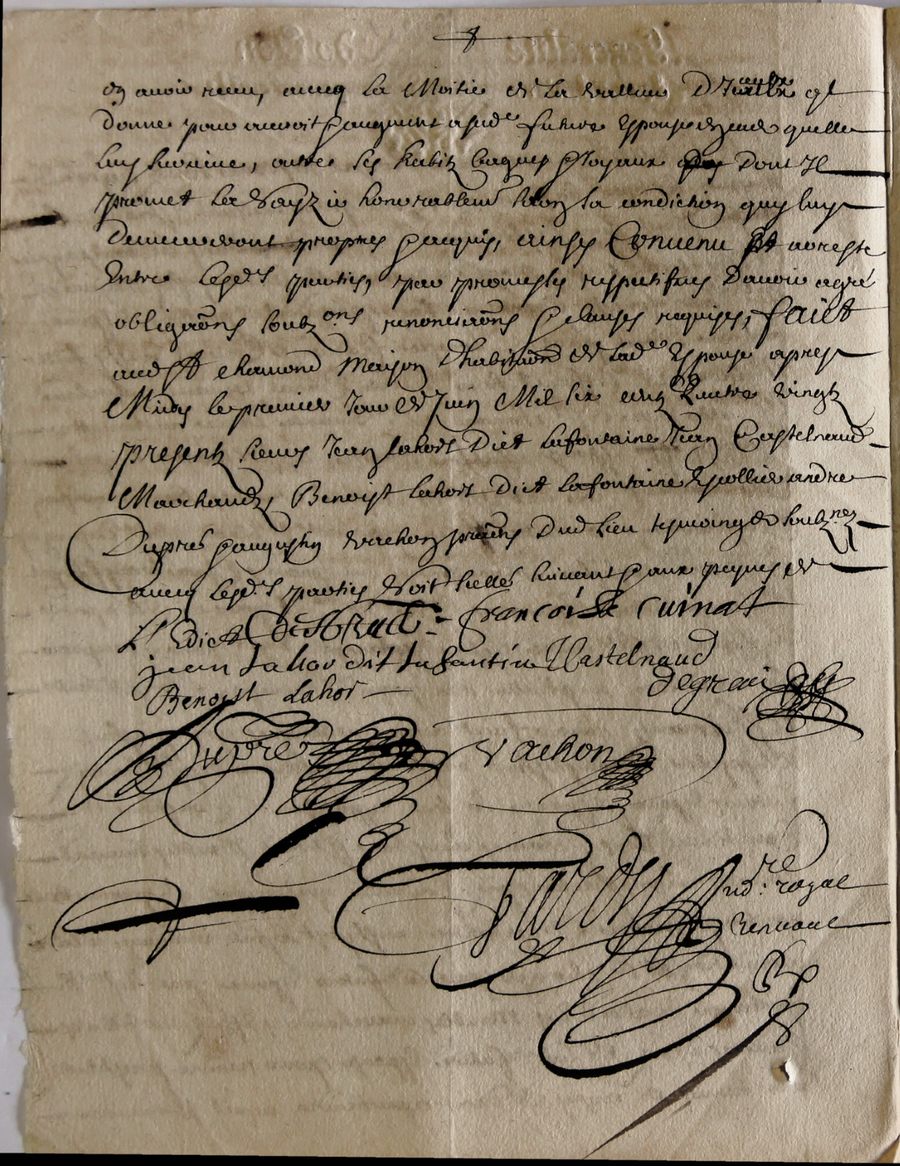 en avoir receu, avecq la Moitie de la valleur D'Icelle qil
donne par avoit Jauquent a sad.e future Espouse Encas quelle
luy survive, outre ses habitz bagues & Joyaux dont Il
promet La vestir honorablem.t selon la condiction quy luy
Demeureront propres & acquis, ainsy Convenu Et arreste
Entre lesd.s parties, par promesses respectifves Davoir agré
obliga͠ons soubz.ons renoncia͠ons & clauses requises, faict
aud St chamond Maison D'habita͠on de lad.e Espouse apres
Midy le premier Jour de Juin Mil six cens quatre vingtz
presentz sieurs Jean Lahort Dict Lafontaine Jean Castelnaud
Marchandz, Benoist Lahort dict Lafontaine andre
Dupre & augustin vachon pra͠ens Dud lieu tesmoingtz soubz.nez
avec lesd.s parties
Francoise Cuinat
jean Lahor dit Lafontaine J Castelnaud
Benoist Lahor
degraix
Dupré
vachon
Tardy No.re royal